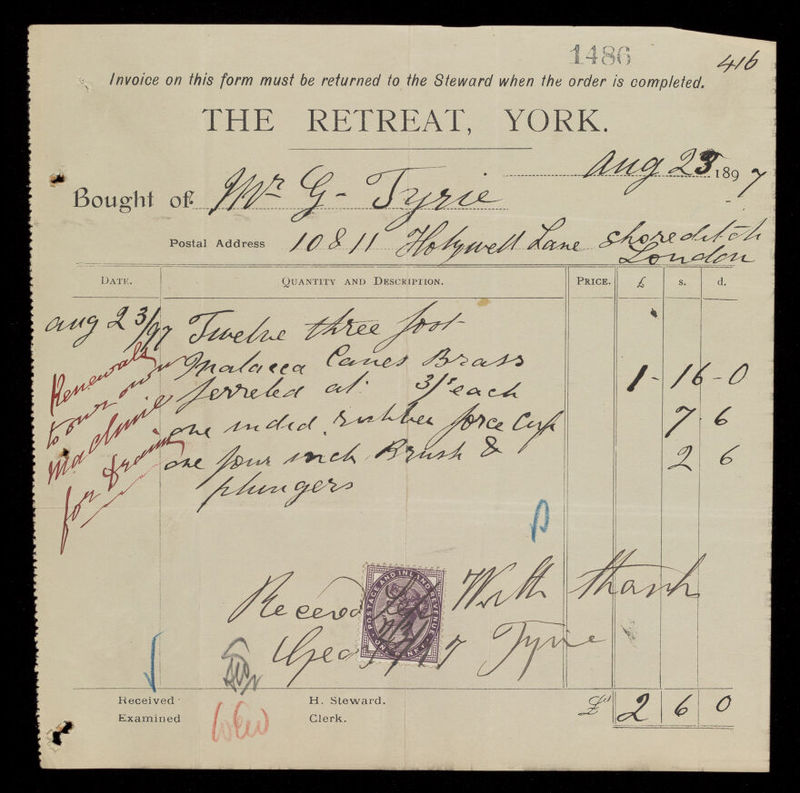 1486
416
Invoice on this form must be returned to the Steward when the order is completed.
THE RETREAT, YORK.
Aug 23 1897
Bought of Mr G. Tyrie
Postal Address 10 & 11 Holywell Lane Shoreditch
London
DATE. QUANTITY AND DESCRIPTION. PRICE. £ s. d.
Aug 23/97 Twelve three foot
Malacca Canes Brass
ferreled at 3/- each 1-16-0
one inded rubber force Cup 7-6
one four inch Brush & 2 6
plungers
Renewals
to our own
Machine
for drains
Received With thanks
Geo Tyrie
POSTAGE AND INLAND REVENUE
ONE PENNY
Received H. Steward.
Examined Clerk.
£ 2 6 0